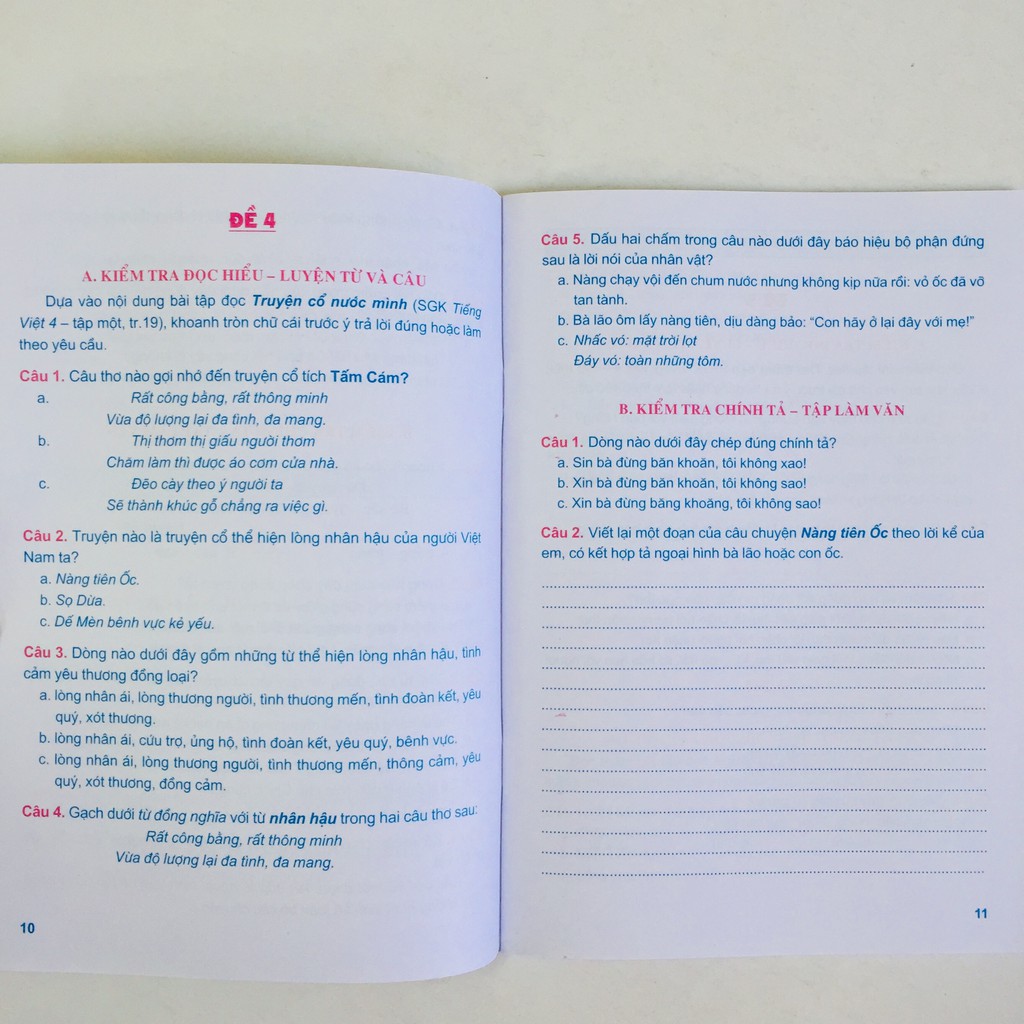 ĐỀ 4
A. KIỂM TRA ĐỌC HIỂU – LUYỆN TỪ VÀ CÂU
Dựa vào nội dung bài tập đọc Truyện cổ nước mình (SGK Tiếng
Việt 4 – tập một, tr.19), khoanh tròn chữ cái trước ý trả lời đúng hoặc làm
theo yêu cầu.
Câu 1. Câu thơ nào gợi nhớ đến truyện cổ tích Tấm Cám?
a. Rất công bằng, rất thông minh
Vừa độ lượng lại đa tình, đa mang.
b. Thị thơm thị giấu người thơm
Chăm làm thì được áo cơm cửa nhà.
c. Đẽo cày theo ý người ta
Sẽ thành khúc gỗ chẳng ra việc gì.
Câu 2. Truyện nào là truyện cổ thể hiện lòng nhân hậu của người Việt
Nam ta?
a. Nàng tiên Ốc.
b. Sọ Dừa.
c. Dế Mèn bênh vực kẻ yếu.
Câu 3. Dòng nào dưới đây gồm những từ thể hiện lòng nhân hậu, tình
cảm yêu thương đồng loại?
a. lòng nhân ái, lòng thương người, tình thương mến, tình đoàn kết, yêu
quý, xót thương.
b. lòng nhân ái, cứu trợ, ủng hộ, tình đoàn kết, yêu quý, bênh vực.
c. lòng nhân ái, lòng thương người, tình thương mến, thông cảm, yêu
quý, xót thương, đồng cảm.
Câu 4. Gạch dưới từ đồng nghĩa với từ nhân hậu trong hai câu thơ sau:
Rất công bằng, rất thông minh
Vừa độ lượng lại đa tình, đa mang.
10
Câu 5. Dấu hai chấm trong câu nào dưới đây báo hiệu bộ phận đứng
sau là lời nói của nhân vật?
a. Nàng chạy vội đến chum nước nhưng không kịp nữa rồi: vỏ ốc đã vỡ
tan tành.
b. Bà lão ôm lấy nàng tiên, dịu dàng bảo: “Con hãy ở lại đây với mẹ!”
c. Nhấc vó: mặt trời lọt
Đáy vó: toàn những tôm.
B. KIỂM TRA CHÍNH TẢ – TẬP LÀM VĂN
Câu 1. Dòng nào dưới đây chép đúng chính tả?
a. Sin bà đừng băn khoăn, tôi không xao!
b. Xin bà đừng băn khoăn, tôi không sao!
c. Xin bà đừng băng khoăng, tôi không sao!
Câu 2. Viết lại một đoạn của câu chuyện Nàng tiên Ốc theo lời kể của
em, có kết hợp tả ngoại hình bà lão hoặc con ốc.
11